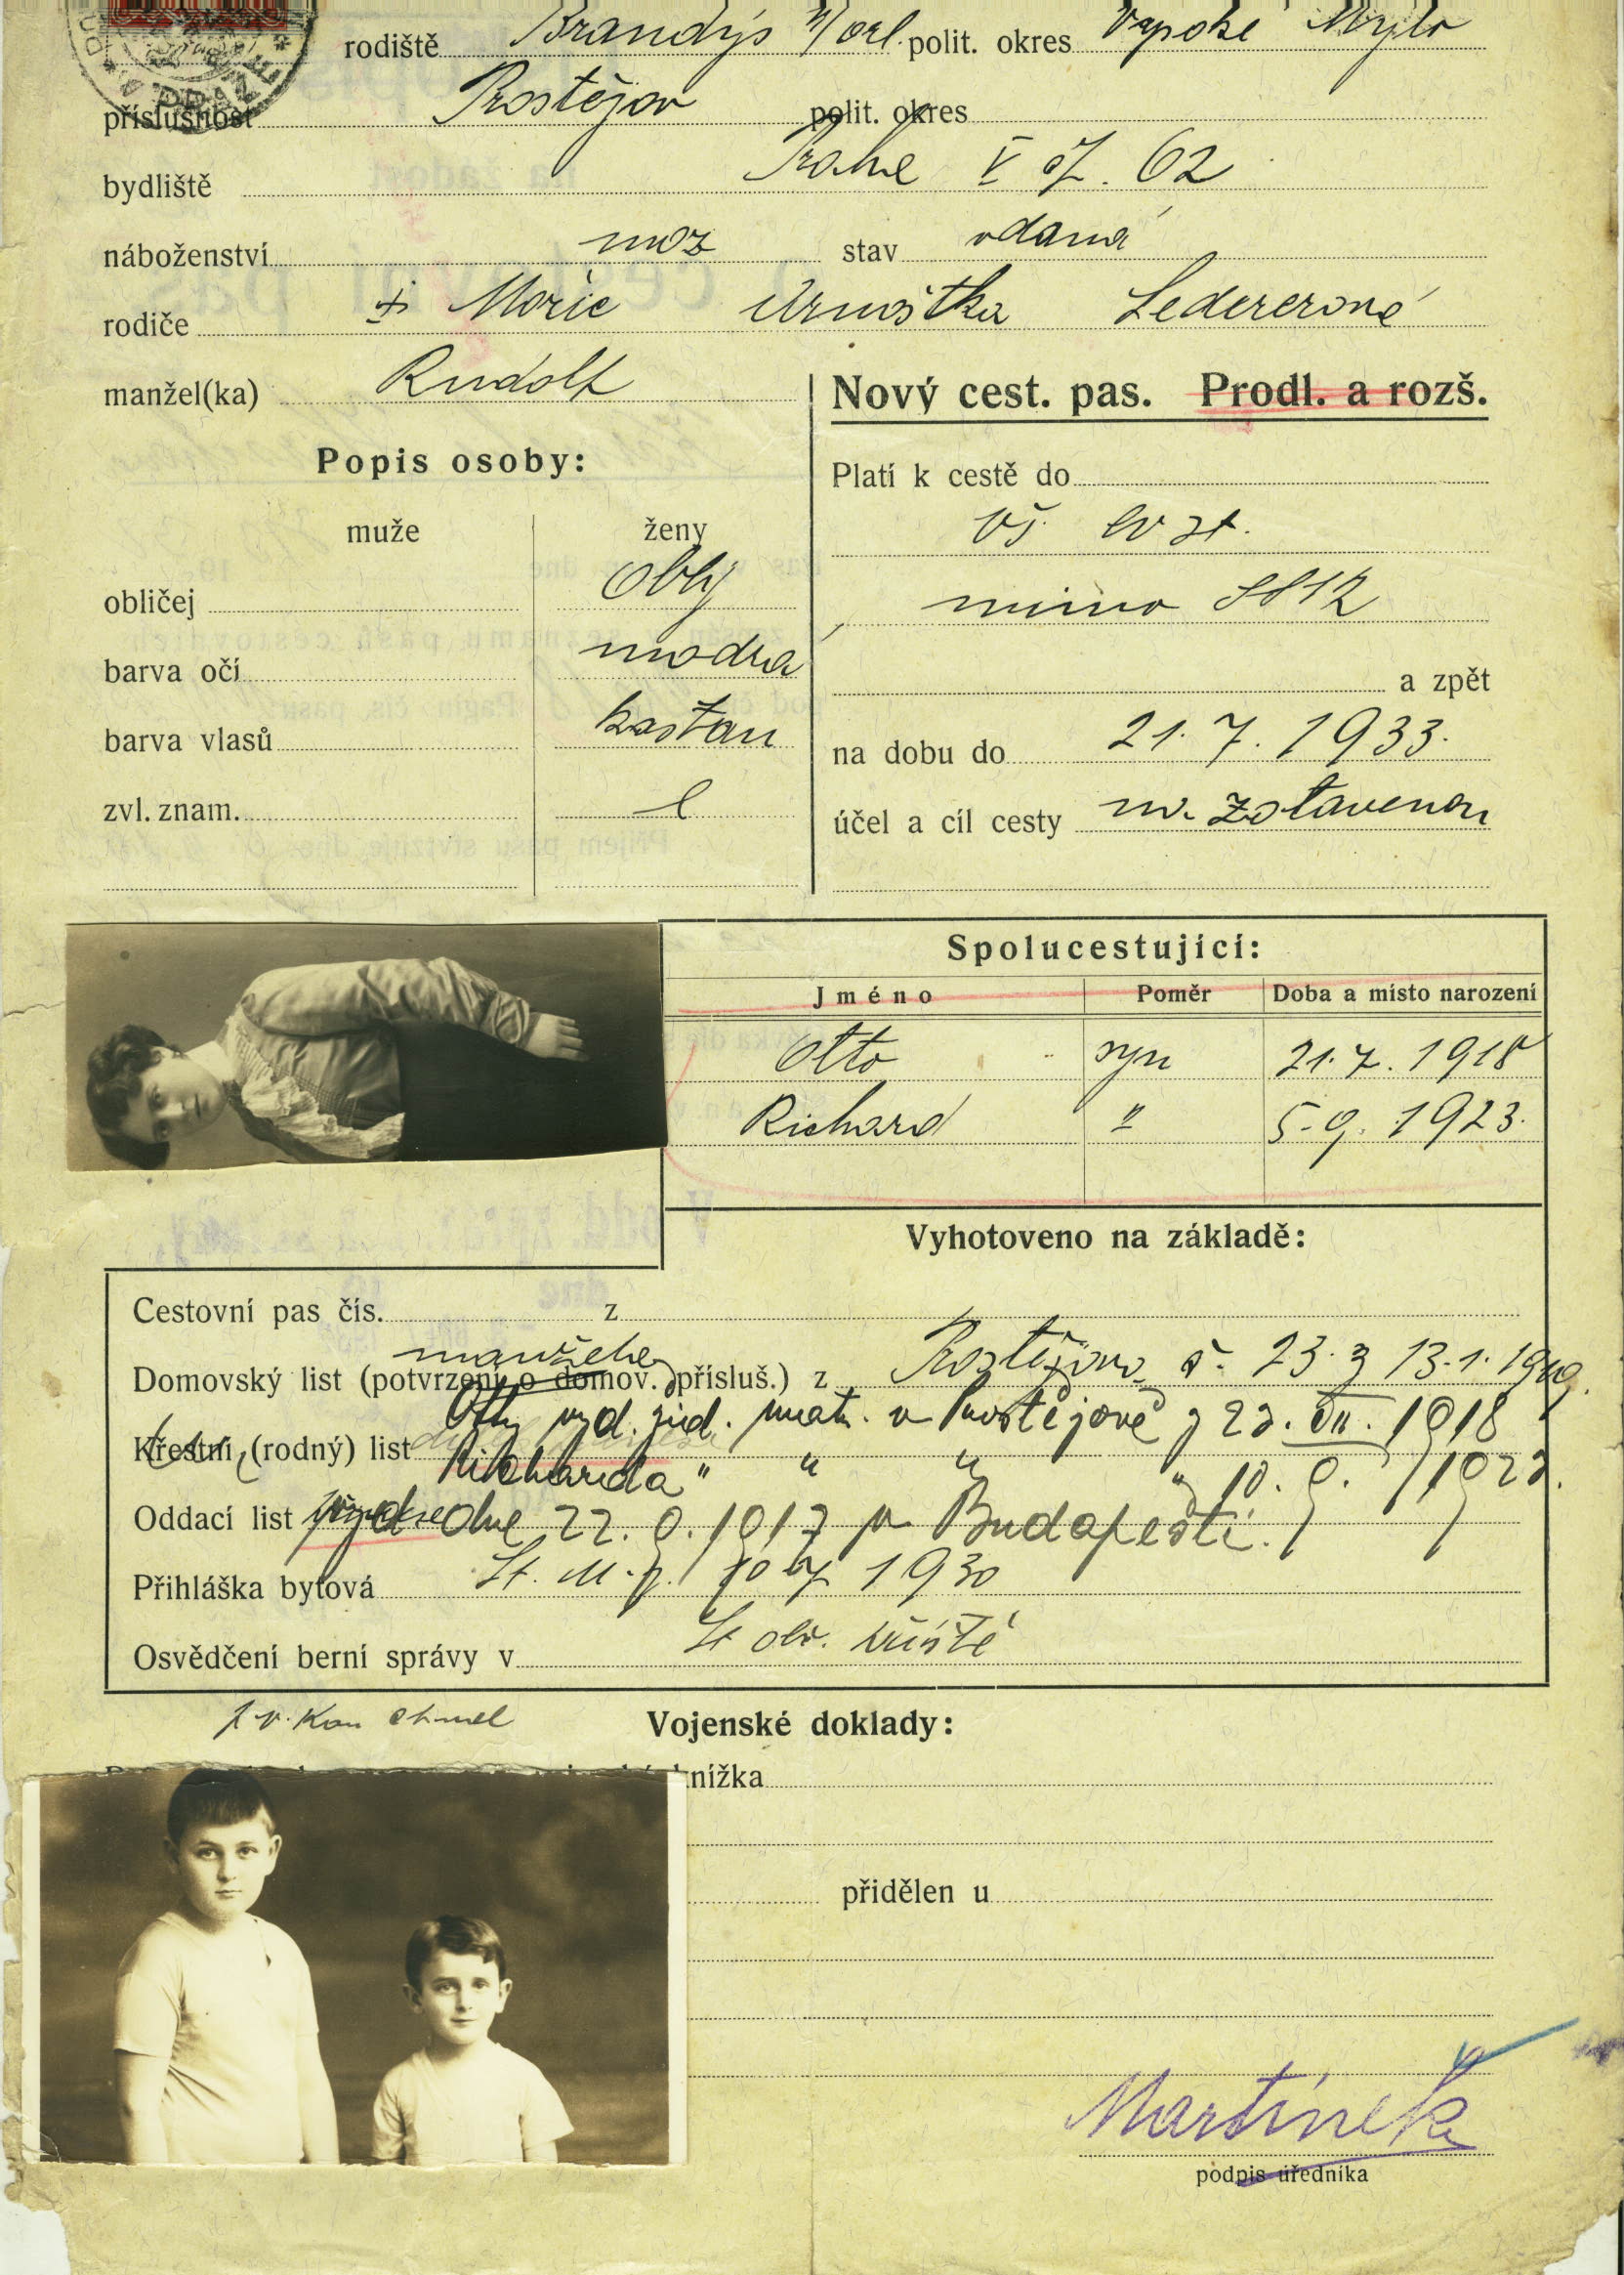 rodiště Brandýs n/orl. polit. okres Vysoké Mýto
PRAZE
příslušnost Prostějov polit. okres
bydliště Praha V 62
náboženství moz stav vdaná
rodiče Moric Arnoštka Ledererové
manžel(ka) Rudolf
Nový cest. pas. Prodl. a rozš.
Popis osoby:
muže ženy
obličej oblý
barva očí modrá
barva vlasů kaštan
zvl. znam.
Platí k cestě do
vš. ev st.
mimo SSSR
a zpět
na dobu do 21. 7. 1933.
účel a cíl cesty zotavenou
Spolucestující:
Jméno Poměr Doba a místo narození
Otto syn 21. 7. 1918
Richard " 5. 9. 1923.
Vyhotoveno na základě:
Cestovní pas čís. z
manžela
Domovský list (potvrzení o domov. přísluš.) z Prostějova č. 23. z 13. 1. 1919.
Otty vyd. žid. mat. v Prostějově z 23. VII. 1918
Křestní (rodný) list
Richarda " " " " 10. 9. 1923.
Oddací list dne 22. 9. 1917 v Budapešti.
Přihláška bytová 1930
Osvědčení berní správy v
Vojenské doklady:
knížka
přidělen u
Martínek
podpis úředníka